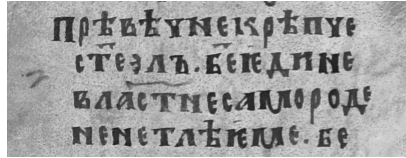 прѣвѣчнекрѣпче
стеэлъ·беѥдине
властнесамороде
ненетлѣѥме·бе